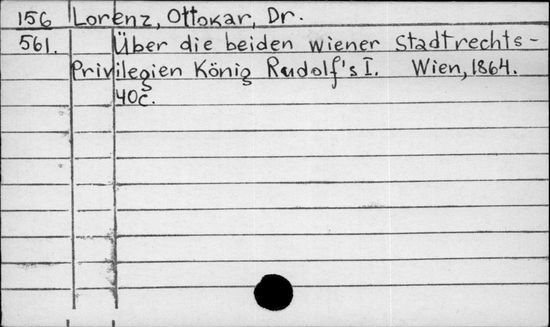 156 Lorenz, Ottokar, Dr.
561. Über die beiden wiener Stadtrechts-
Privilegien König Rudolf's I. Wien, 1864.
40c.